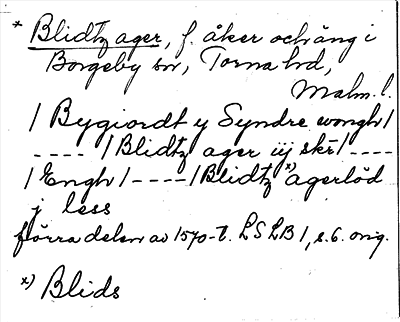 * Blidtz ager, f. åker och äng i
Borgeby sn, Torna hd,
Malm. l.
/ Bygiordt y Syndre wongh /
---- / Blidtz ager iij skr / ----
/ Engh / ---- / Blidtz x) agerlöd
j less
förra delen av 1570-t. LSLB 1, s. 6. orig.
x) Blids